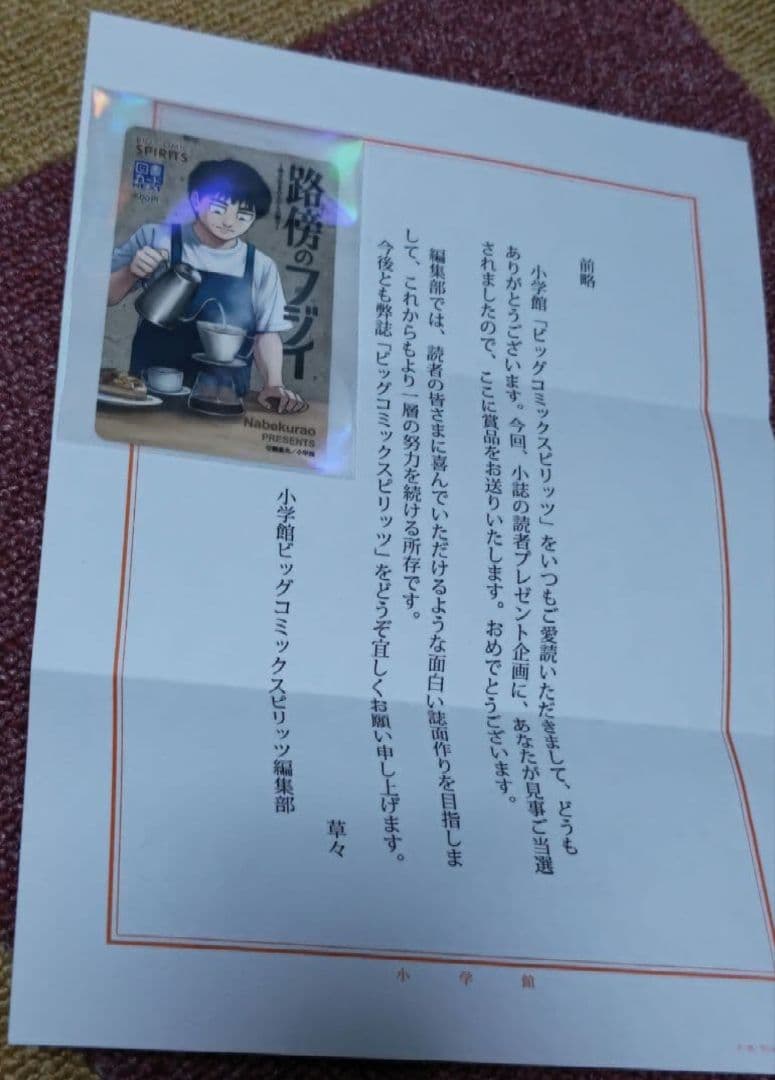 前略
小学館「ビッグコミックスピリッツ」をいつもご愛読いただきまして、どうも
ありがとうございます。今回、小誌の読者プレゼント企画に、あなたが見事ご当選
されましたので、ここに賞品をお送りいたします。おめでとうございます。
編集部では、読者の皆さまに喜んでいただけるような面白い誌面作りを目指しま
して、これからもより一層の努力を続ける所存です。
今後とも弊誌「ビッグコミックスピリッツ」をどうぞ宜しくお願い申し上げます。
草々
小学館ビッグコミックスピリッツ編集部
小学館
SPIRITS
図書カード
路傍のフジイ
Nabekurao
PRESENTS